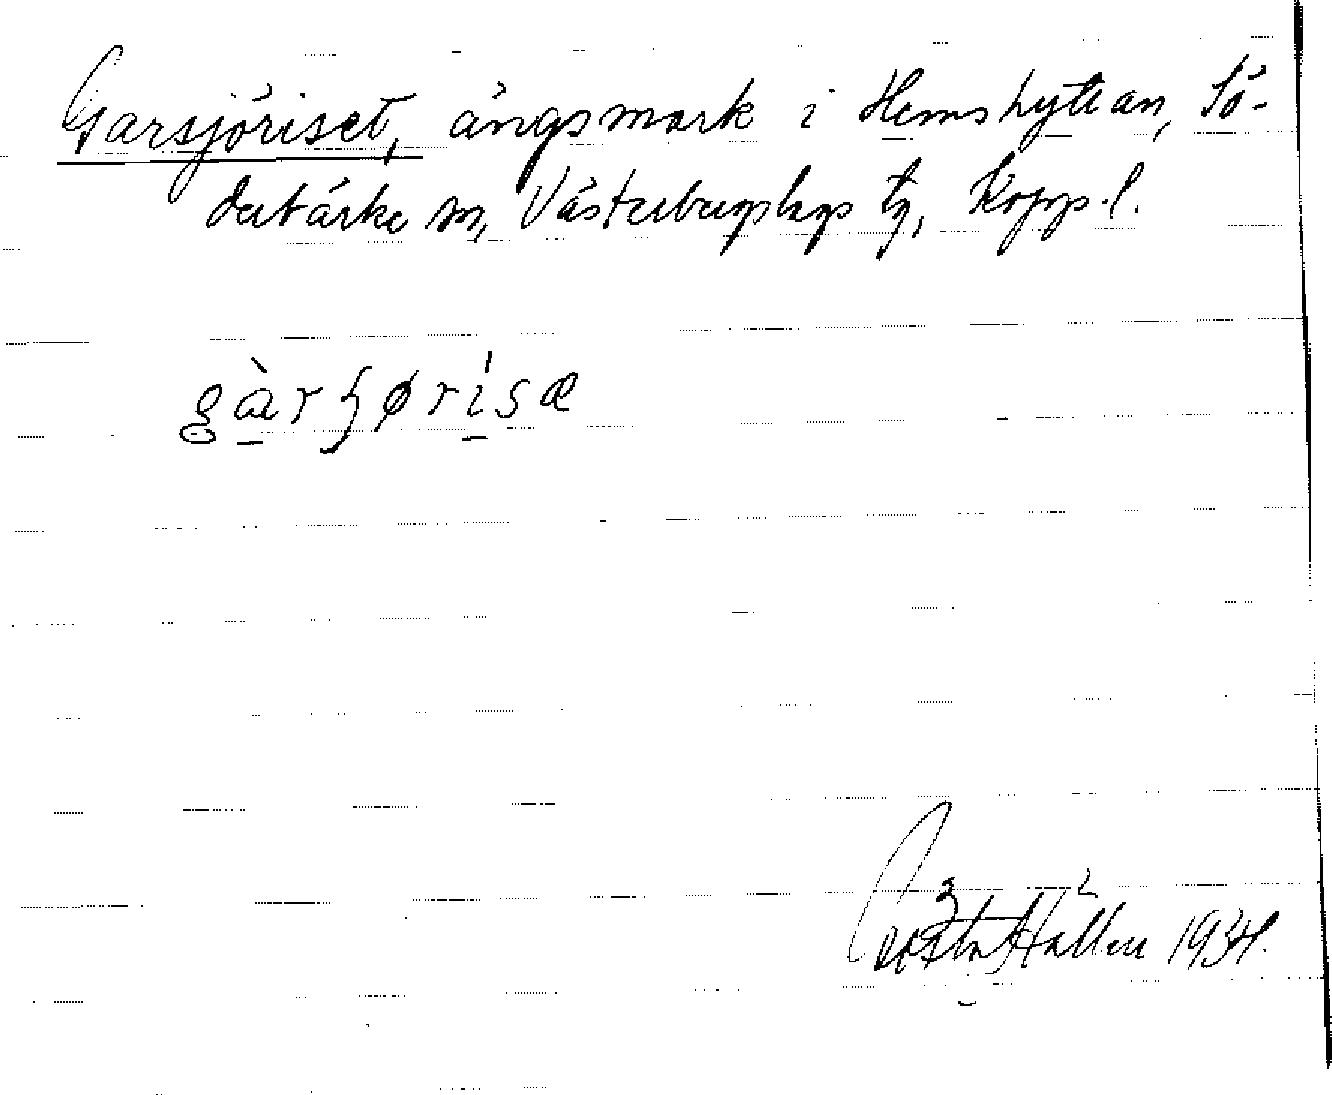 Garsjöriset, ängsmark i Hemshyttan, Sö-
derbärke sn, Västerbergslags tg, Kopp. l.
gàrʂørisæ
Hallén 1934.